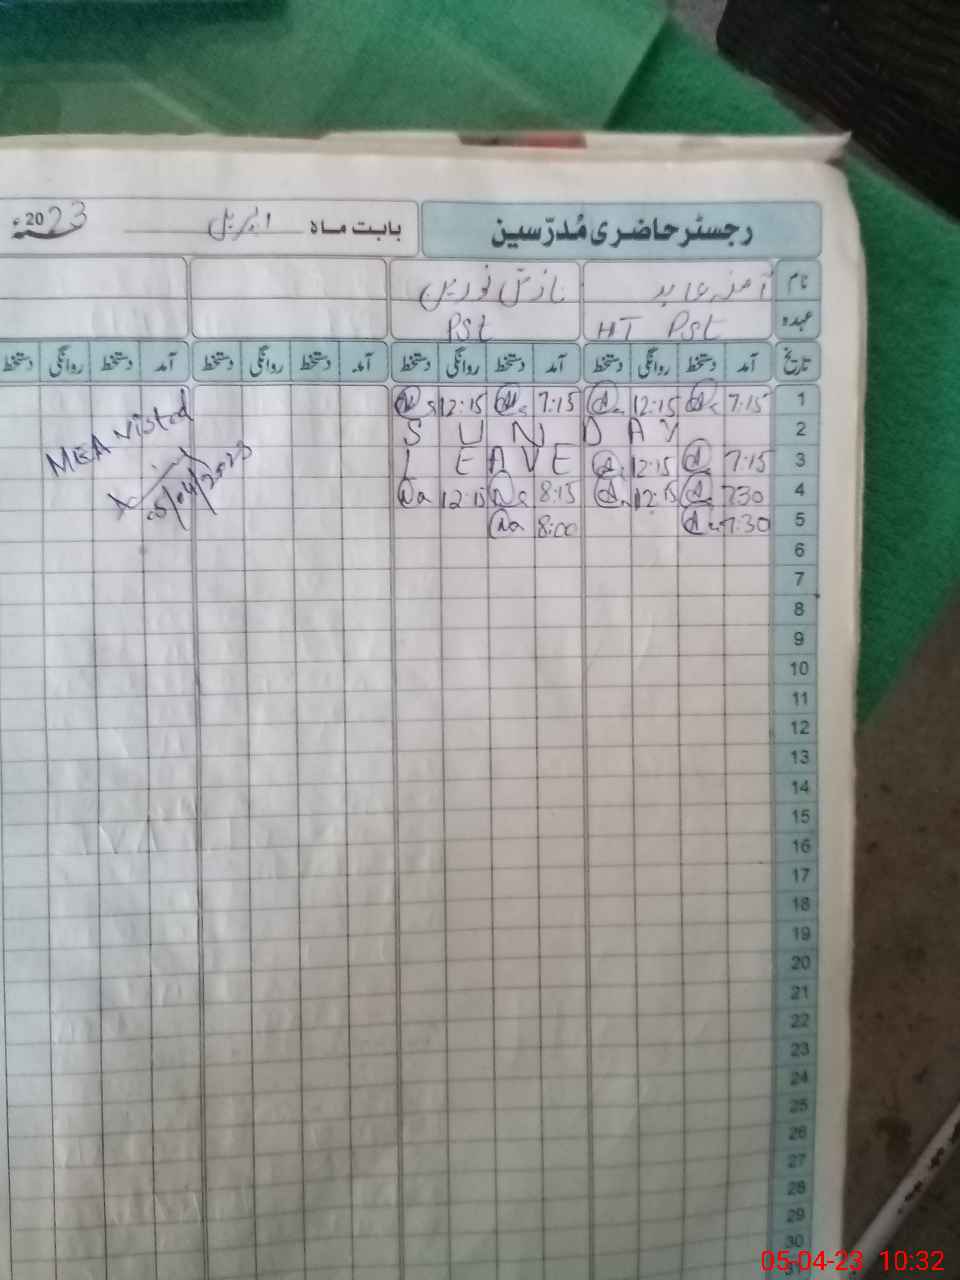 رجسٹر حاضری مُدرّسین بابت ماہ اپریل 2023ء
نام آمنہ عابد نازش نورین
عہدہ HT PSt PSt
تاریخ آمد دستخط روانگی دستخط آمد دستخط روانگی دستخط آمد دستخط روانگی دستخط آمد دستخط روانگی دستخط
1 7:15 12:15 7:15 12:15
2 S U N D A Y
3 7:15 12:15 L E A V E
4 7:30 12:15 8:15 12:15
5 7:30 8:00
MEA visted
05/04/2023
6
7
8
9
10
11
12
13
14
15
16
17
18
19
20
21
22
23
24
25
26
27
28
29
30
31
05-04-23 10:32